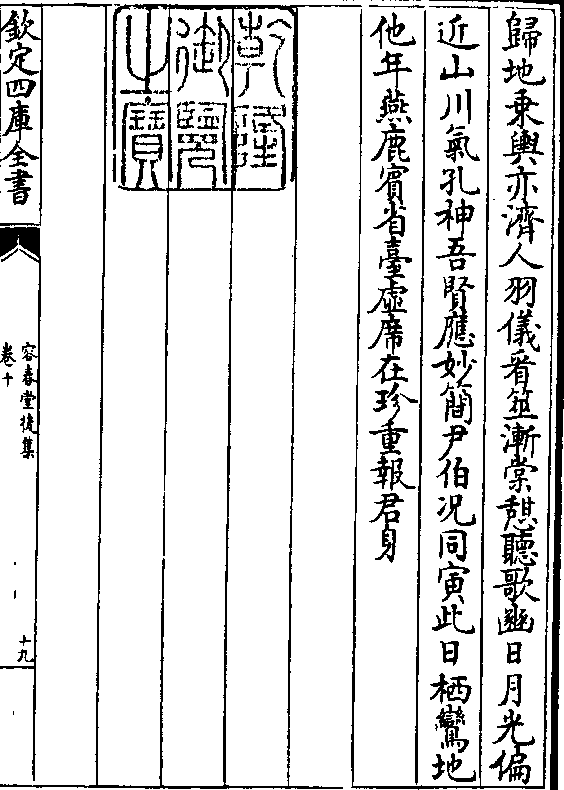 歸地乗輿亦濟人羽儀看筮漸棠憇聽歌豳日月光偏
近山川氣孔神吾賢應妙簡尹伯况同寅此日栖鸞地
他年燕鹿賓省臺虛席在珍重報君身
乾隆
御覽
之寶
欽定四庫全書
容春堂後集
卷十
十九